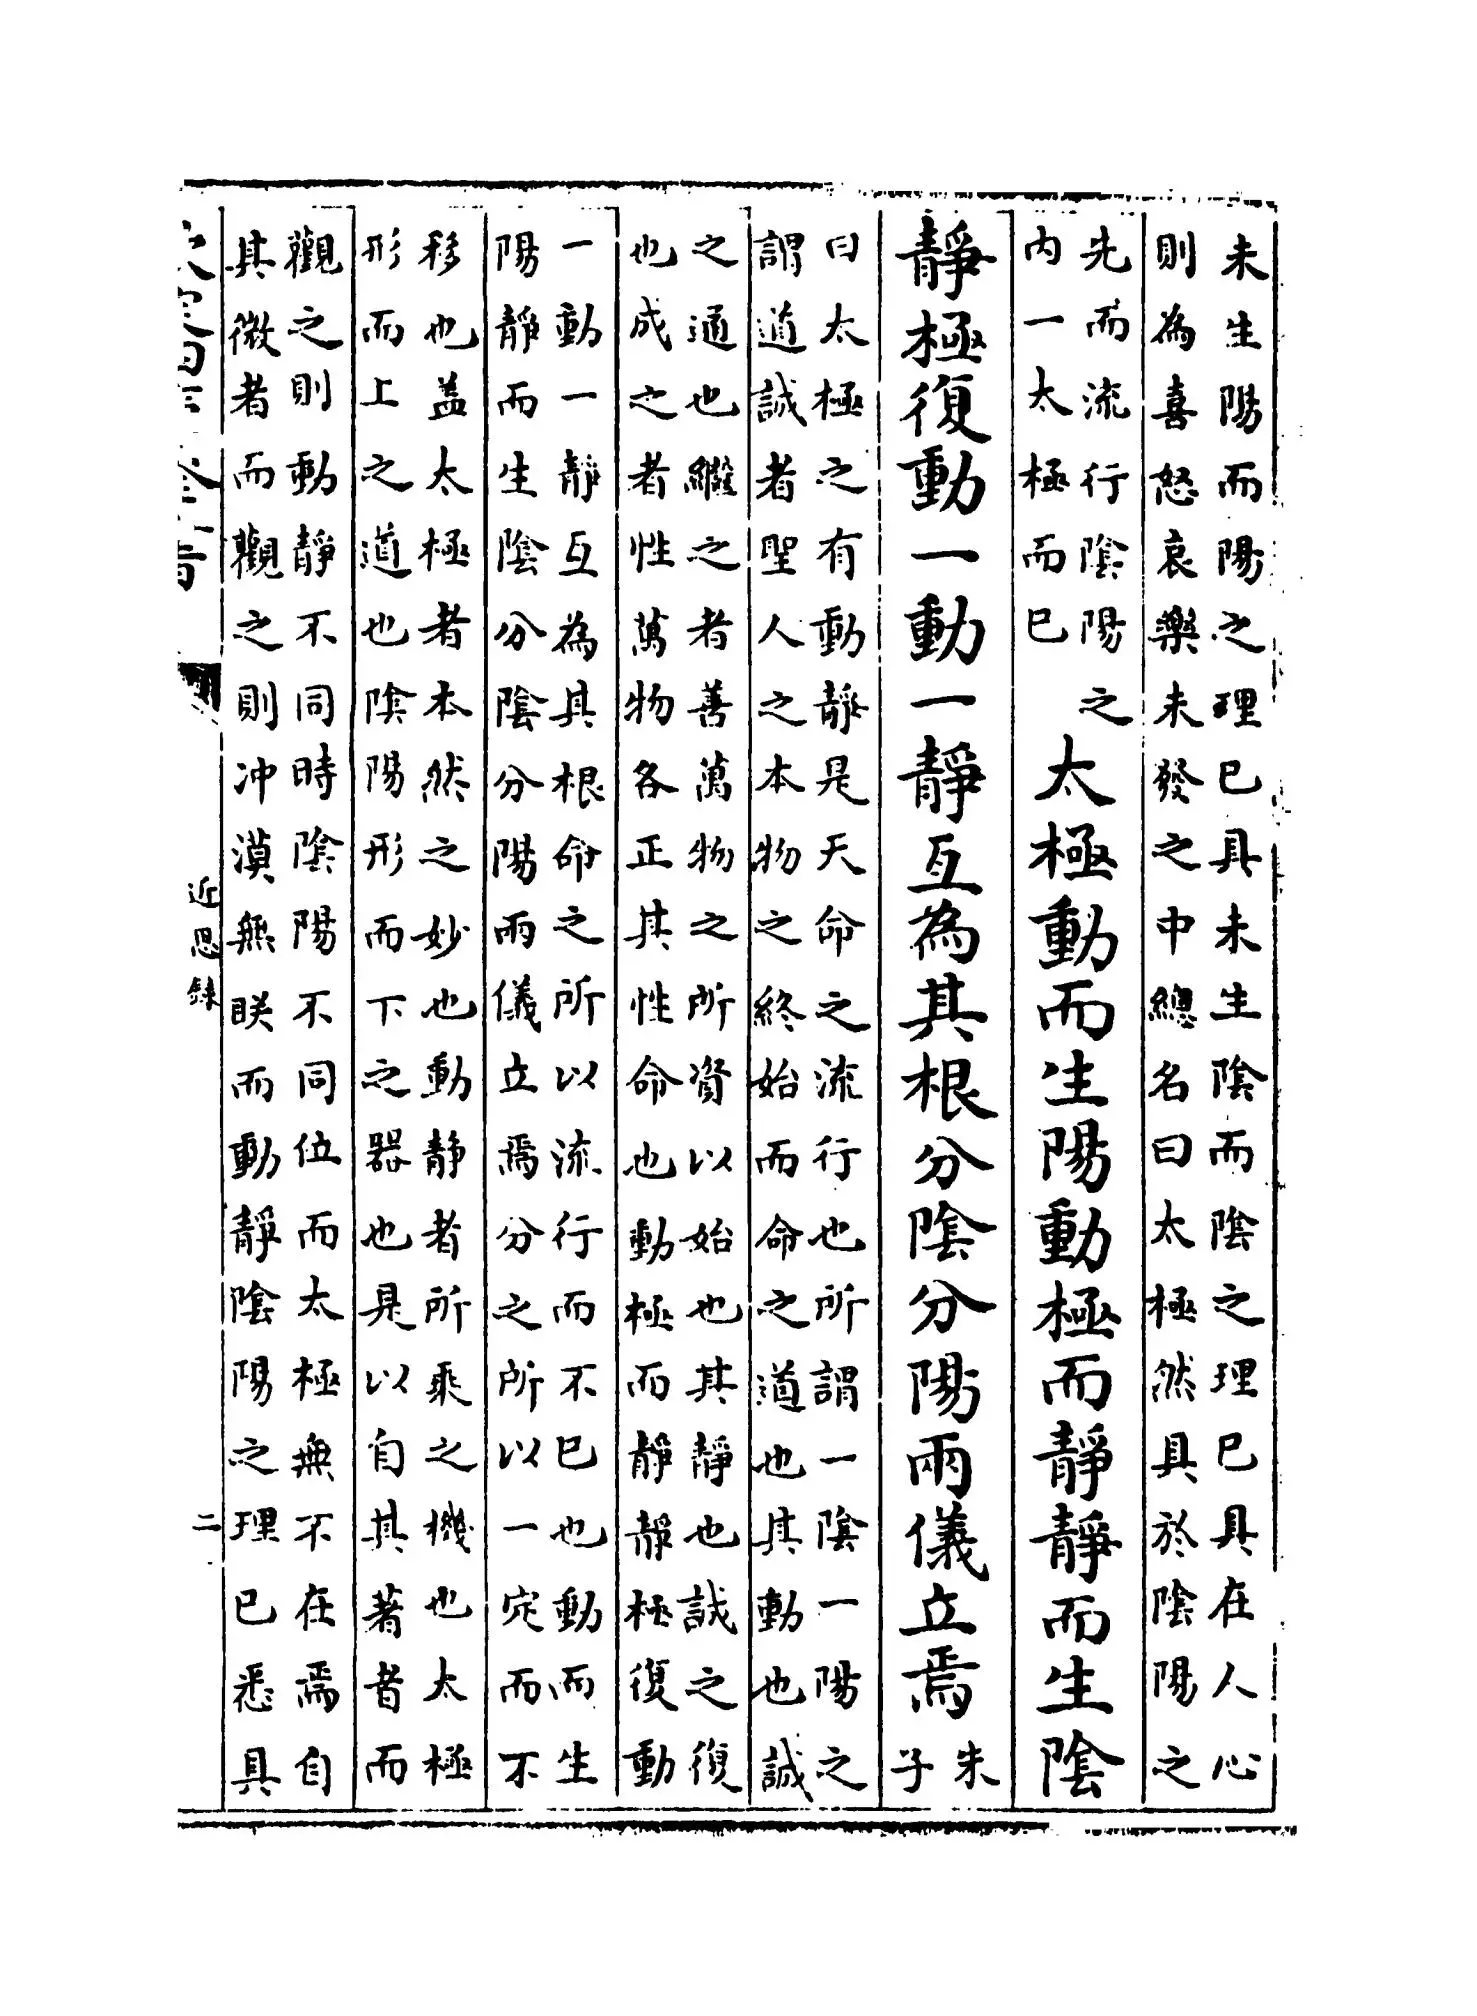 未生陽而陽之理已具未生陰而陰之理已具在人心
則為喜怒哀樂未發之中總名曰太極然具於陰陽之
先而流行陰陽之
內一太極而已
太極動而生陽動極而靜靜而生陰
靜極復動一動一靜互為其根分陰分陽兩儀立焉
朱
子
曰太極之有動靜是天命之流行也所謂一陰一陽之
謂道誠者聖人之本物之終始而命之道也其動也誠
之通也繼之者善萬物之所資以始也其靜也誠之復
也成之者性萬物各正其性命也動極而靜靜極復動
一動一靜互為其根命之所以流行而不已也動而生
陽靜而生陰分陰分陽兩儀立焉分之所以一定而不
移也蓋太極者本然之妙也動靜者所乘之機也太極
形而上之道也陰陽形而下之器也是以自其著者而
觀之則動靜不同時陰陽不同位而太極無不在焉自
其微者而觀之則冲漠無眹而動靜陰陽之理已悉具
近思録
二